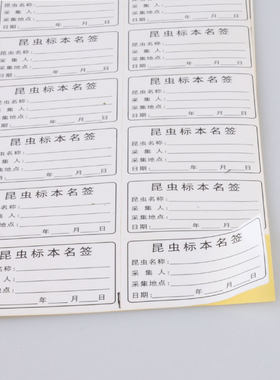 昆虫名称：
采 集 人：
采集地点：
日期： 年 月 日
昆虫名称：
采 集 人：
采集地点：
日期： 年 月 日
昆虫标本名签
昆虫名称：
采 集 人：
采集地点：
日期： 年 月 日
昆虫标本名签
昆虫名称：
采 集 人：
采集地点：
日期： 年 月 日
昆虫标本名签
昆虫名称：
采 集 人：
采集地点：
日期： 年 月 日
昆虫标本名签
昆虫名称：
采 集 人：
采集地点：
日期： 年 月 日
昆虫标本名签
昆虫名称：
采 集 人：
采集地点：
年 月 日
昆虫标本名签
昆虫名称：
采 集 人：
采集地点：
日期： 年 月 日
昆虫标本名签
年 月 日
昆虫标本名签
昆虫名称：
采 集 人：
采集地点：
日期： 年 月 日
昆虫标本名签
年 月 日
昆虫标本名签
昆虫名称：
采 集 人：
采集地点：
日期： 年 月 日